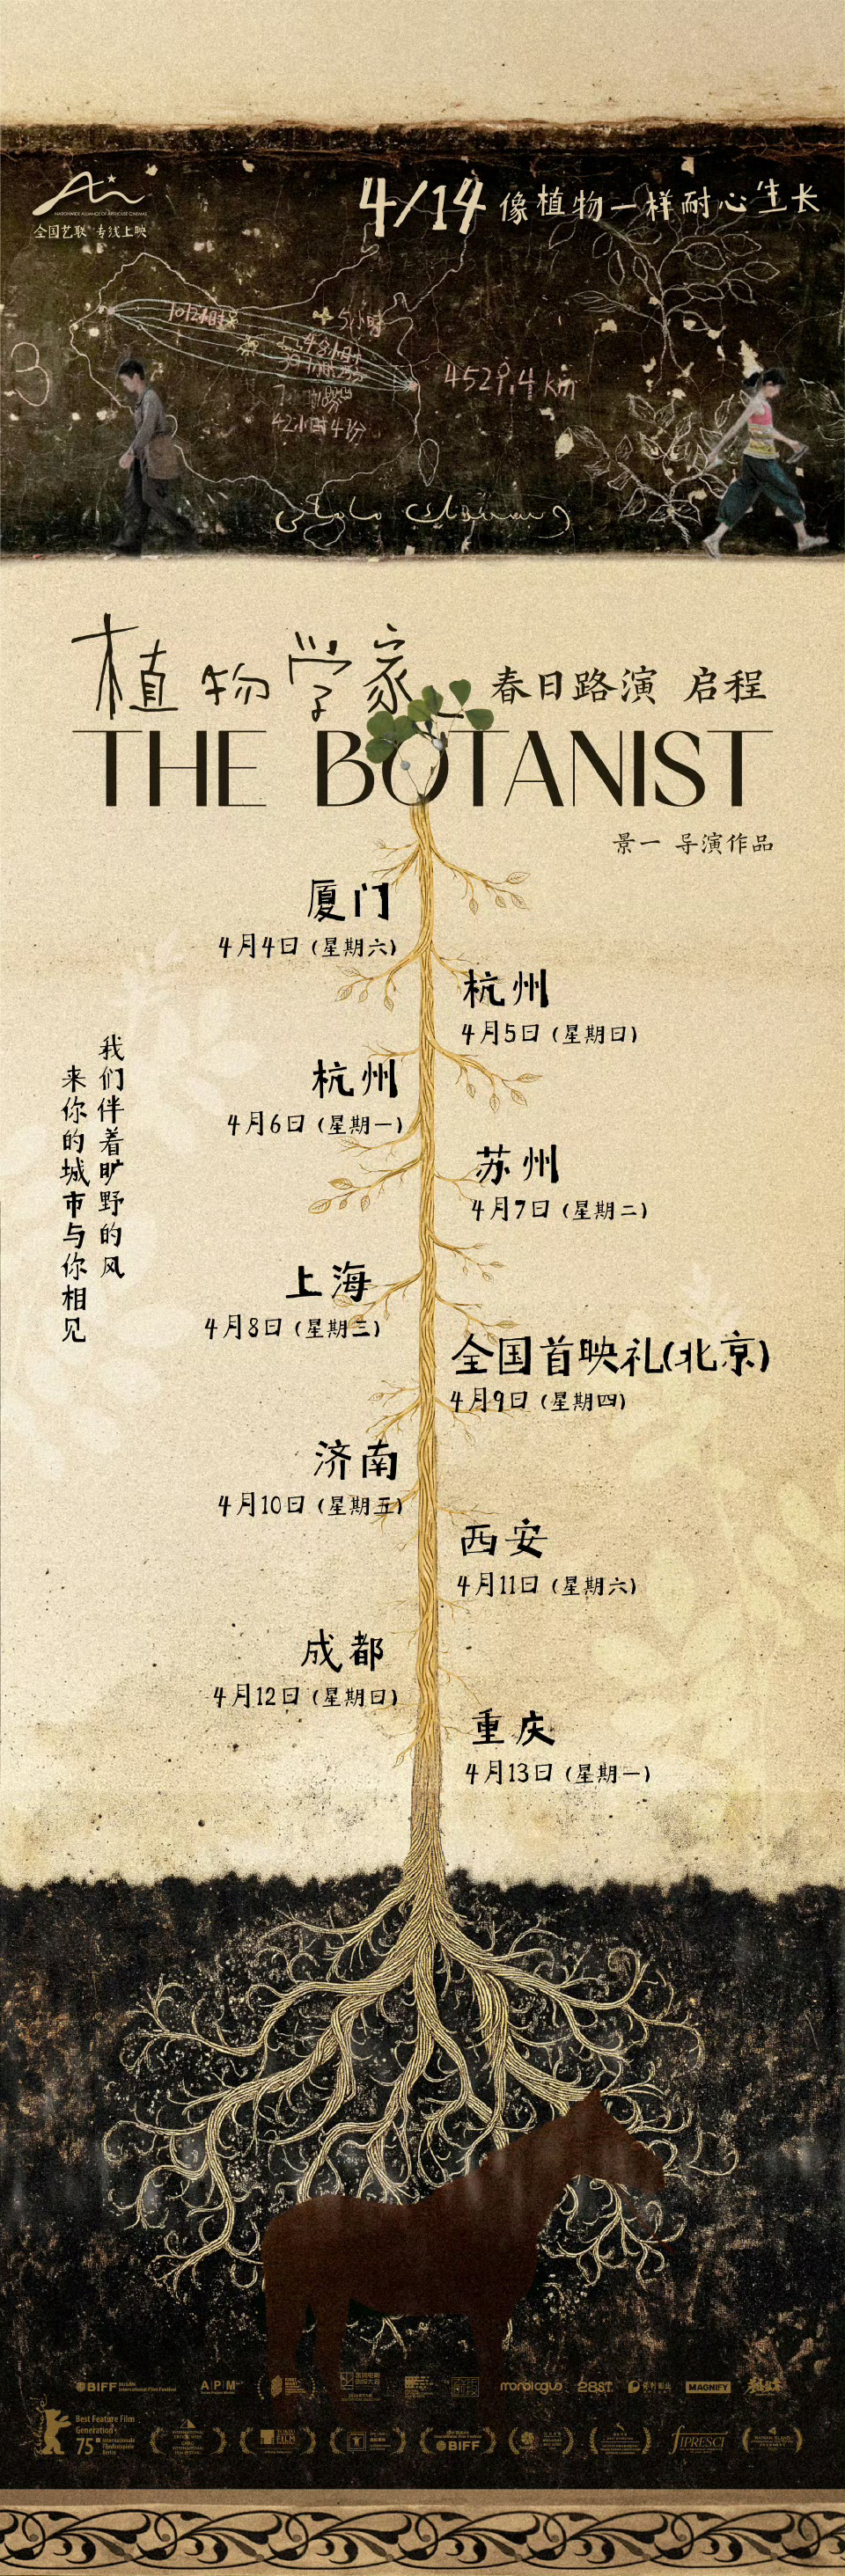 NATIONWIDE ALLIANCE OF ARTHOUSE CINEMAS
全国艺联 专线上映
4/14 像植物一样耐心生长
5小时
4529.4 km
42小时4分
3
植物学家
春日路演 启程
THE BOTANIST
景一 导演作品
厦门
4月4日(星期六)
杭州
4月5日(星期日)
杭州
4月6日(星期一)
苏州
4月7日(星期二)
上海
4月8日(星期三)
全国首映礼(北京)
4月9日(星期四)
济南
4月10日(星期五)
西安
4月11日(星期六)
成都
4月12日(星期日)
重庆
4月13日(星期一)
我们伴着旷野的风
来你的城市与你相见
BIFF BUSAN International Film Festival
A|P|M
monologue
28ST
MAGNIFY
Best Feature Film
Generation
75 Internationale
Filmfestspiele
Berlin
BIFF
FIPRESCI